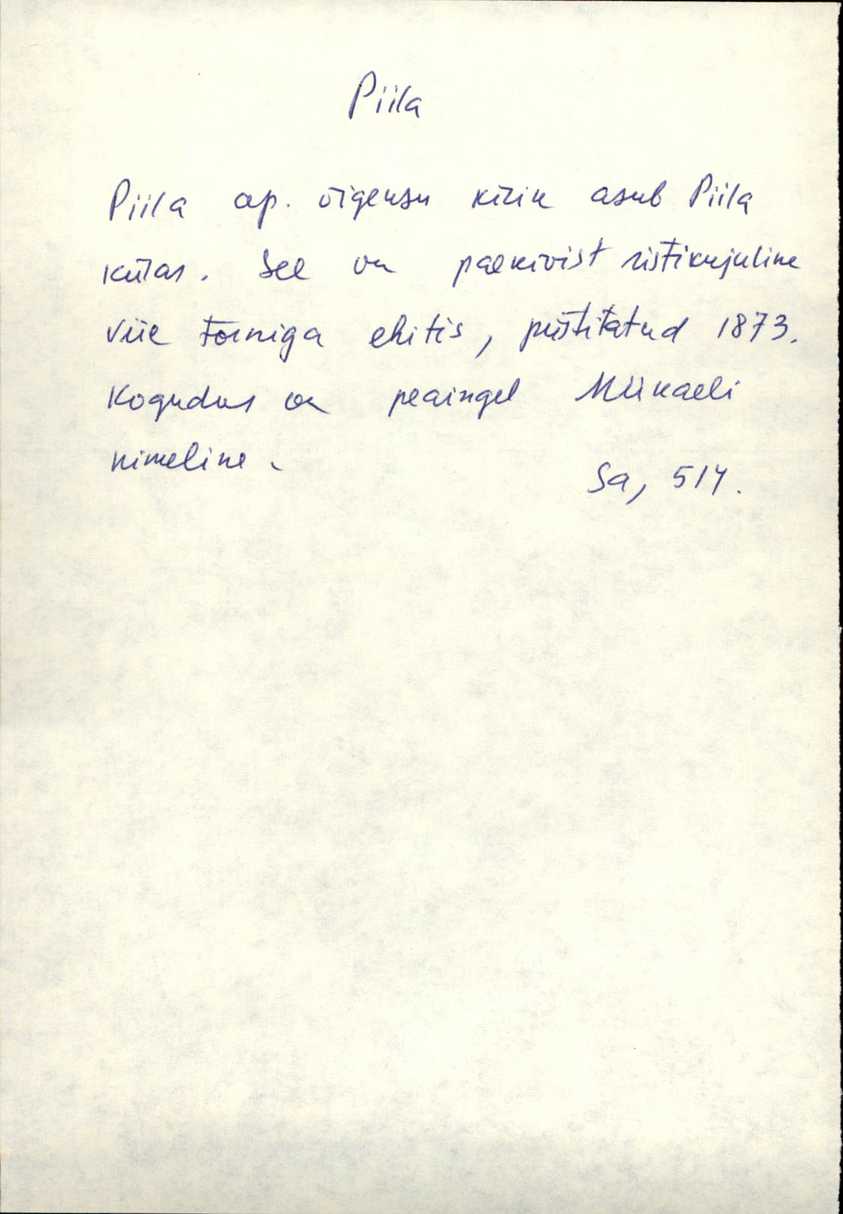 Piila
Piila ap. õigeusu kirik asub Piila
külas. See on paekivist ristikujuline
viie torniga ehitis, püstitatud 1873.
Kogudus on peaingel Miikaeli
nimeline.
Sa, 514.